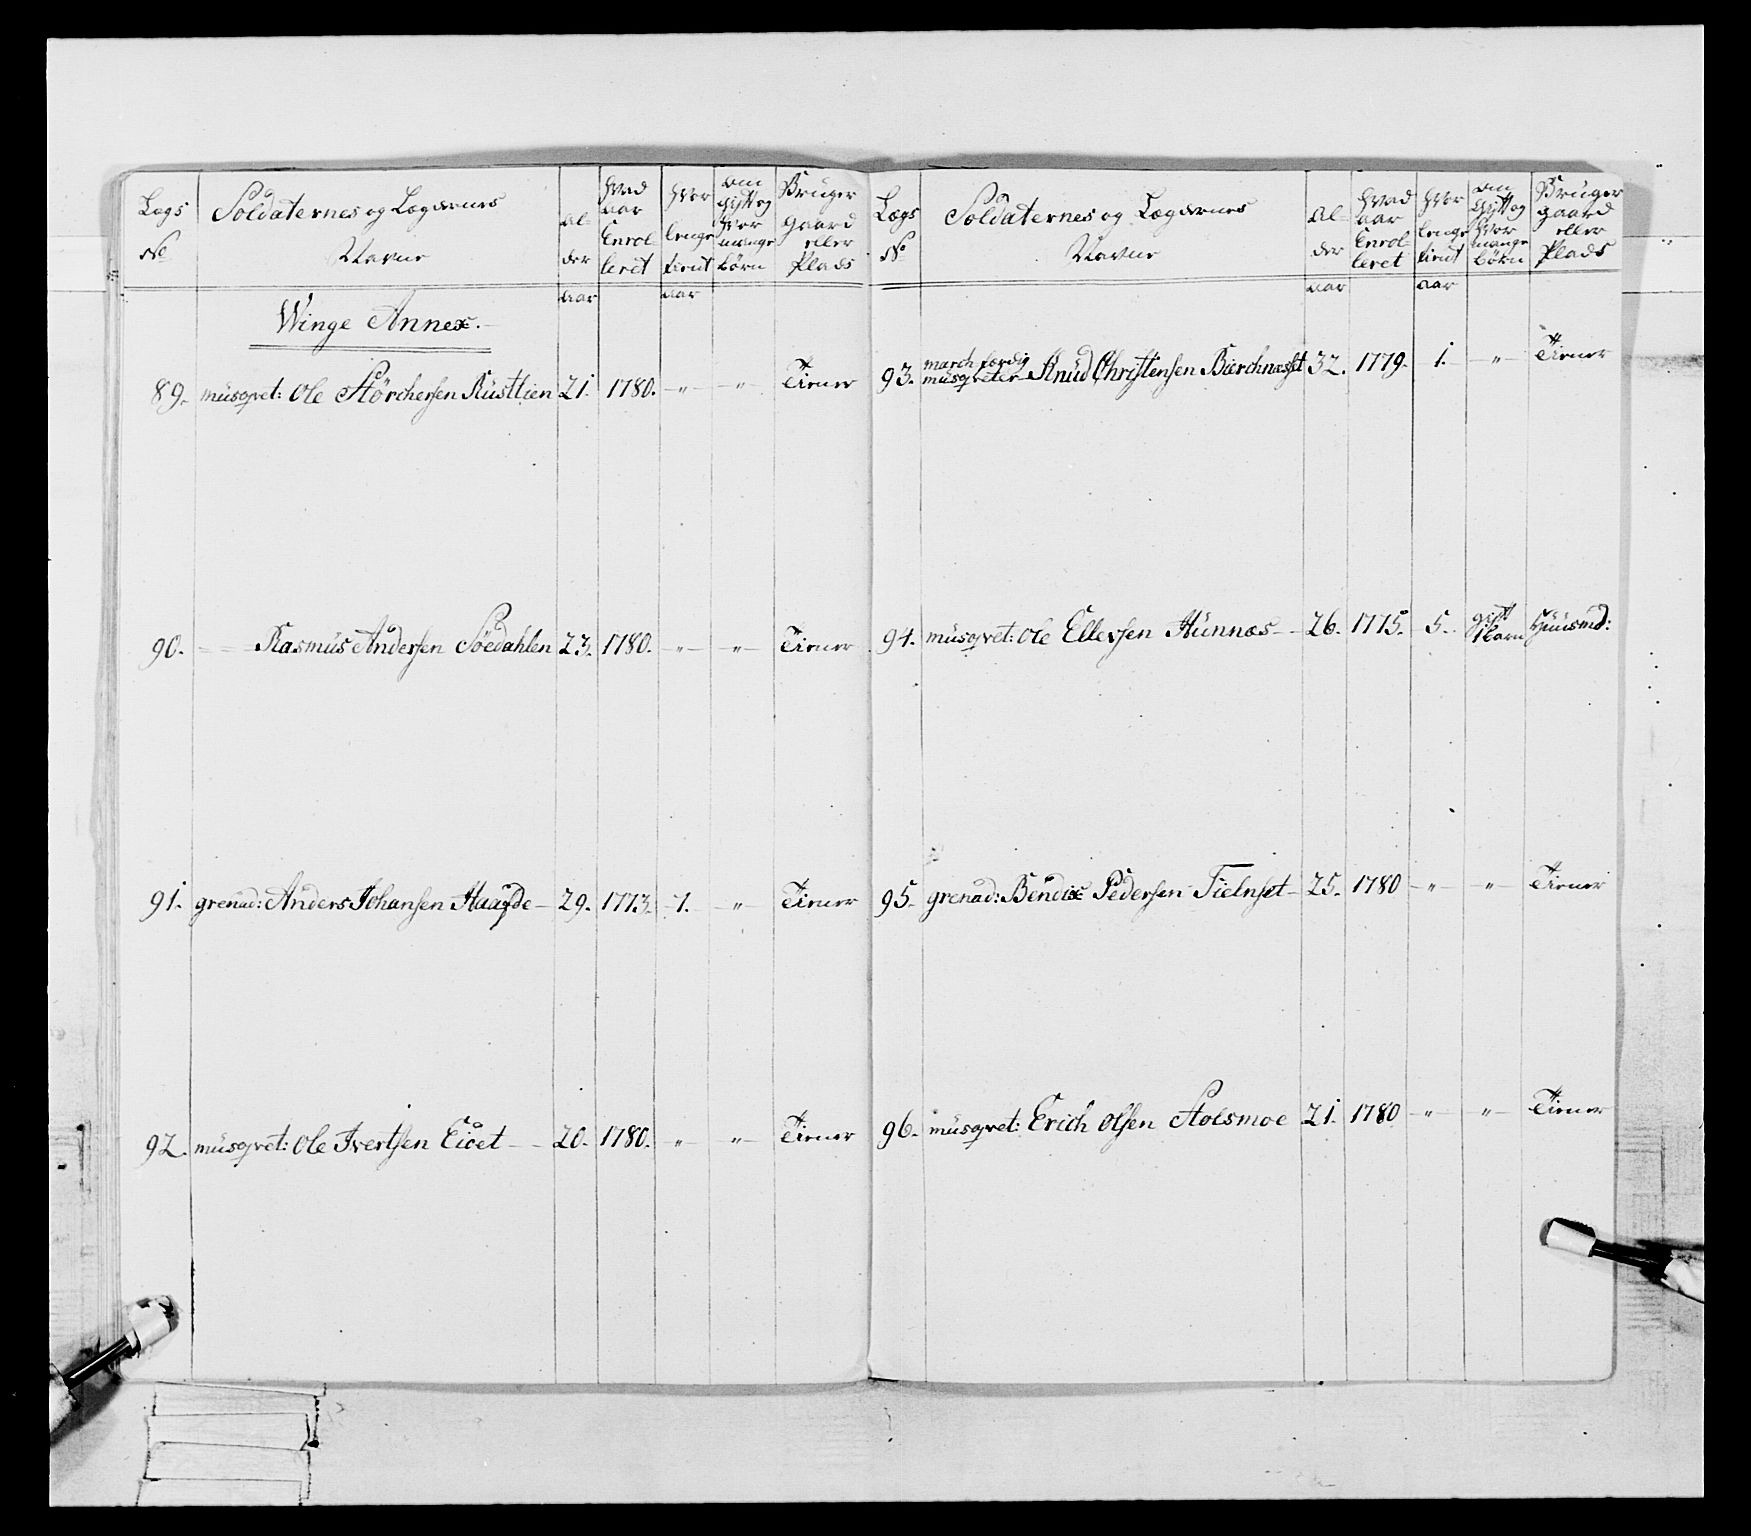 Lægs No | Soldaternes og Lægernes Navne | Al- der | Hvad aar Enrol- lerit | Hvor lenge tient | om gift og Hvor mange börn | Bruger gaard eller Plads
aar | aar
Winge Annex.
89. | musqvet: Ole Störchersen Rusttien | 21. | 1780. | " | " | Tiener
90. | — — Rasmus Andersen Söedahlen | 23. | 1780. | " | " | Tiener
91. | grenad: Anders Johansen Haafde | 29. | 1773. | 7. | " | Tiener
92. | musqvet: Ole Ivertsen Eidet | 20. | 1780. | " | " | Tiener
Lægs No | Soldaternes og Lægernes Navne | Al- der | Hvad aar Enrol- leret | Hvor lenge tient | om gift og Hvor mange börn | Bruger gaard eller Plads
aar | aar
93. | march færdig musqveter Knud Christensen Bierchnæsset | 32. | 1779. | 1. | " | Tiener
94. | musqvet: Ole Ellevsen Hunnæs | 26. | 1775. | 5. | gift 1 barn | Huusmd:
95. | grenad: Bendix Pedersen Tielnset | 25. | 1780 | " | " | Tiener
96. | musqvet: Erich Olsen Stolsmoe | 21. | 1780 | " | " | Tiener